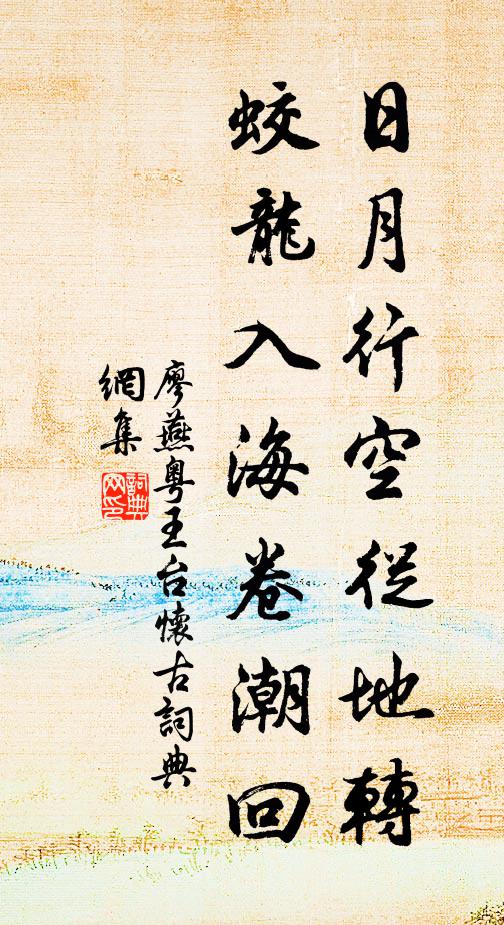 日月行空從地轉
蛟龍入海卷潮回
廖燕粵王台懷古詞典
網集
詞典
网印